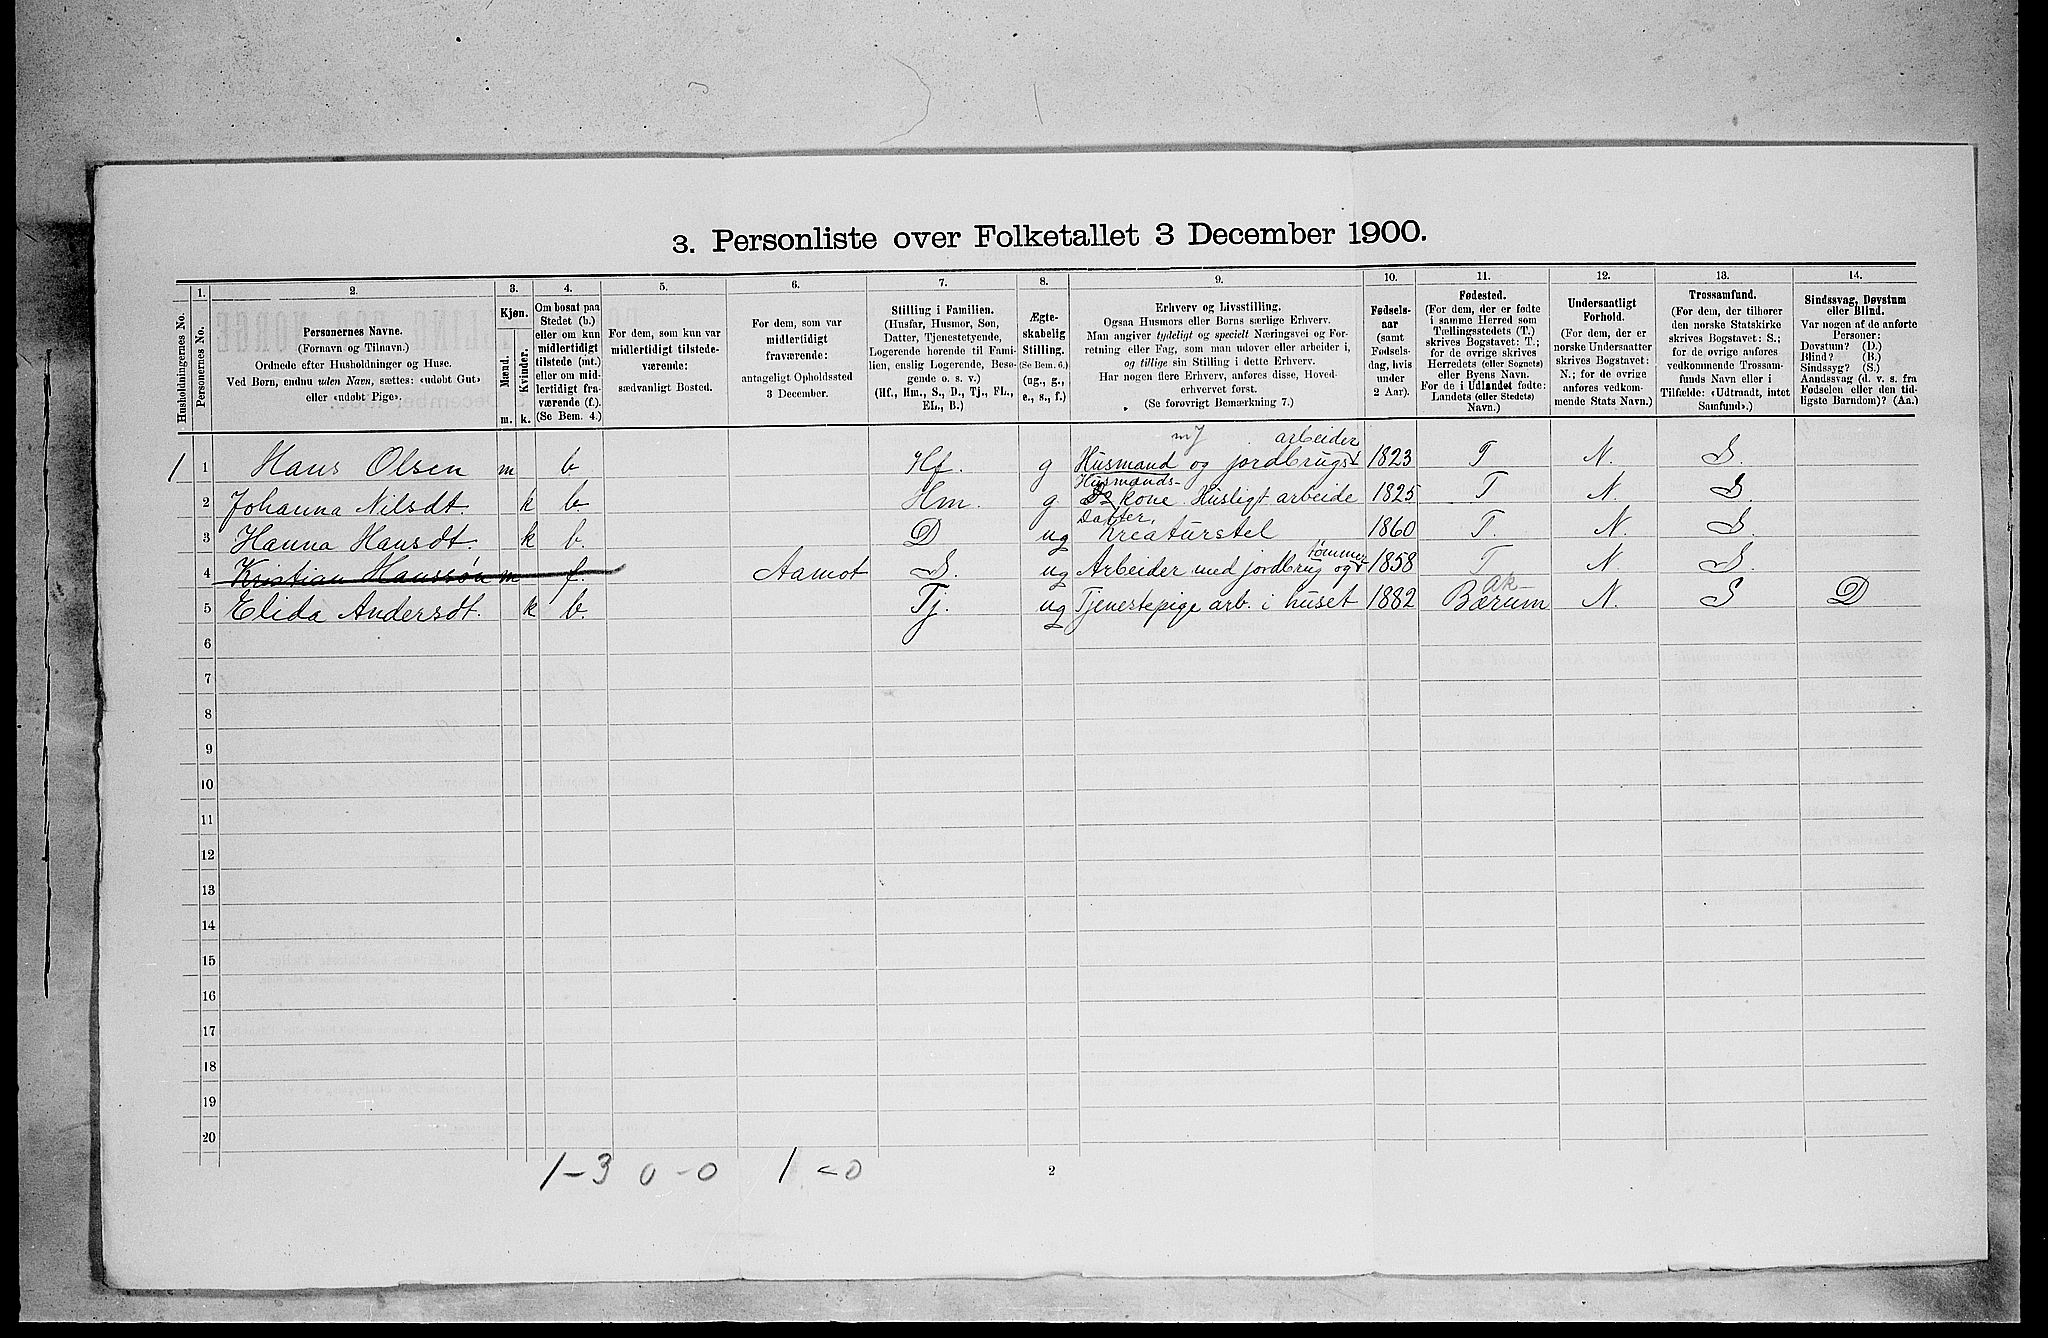 3. Personliste over Folketallet 3 December 1900.
Husholdningernes No.
1.
Personernes No.
2.
Personernes Navne.
(Fornavn og Tilnavn.)
Ordnede efter Husholdninger og Huse.
Ved Børn, endnu uden Navn, sættes: «udøbt Gut»
eller «udøbt Pige».
3.
Kjøn.
Mænd.
Kvinder.
m. k.
4.
Om bosat paa
Stedet (b.)
eller om kun
midlertidigt
tilstede (mt.)
eller om mid-
lertidigt fra-
værende (f.).
(Se Bem. 4.)
5.
For dem, som kun var
midlertidigt tilstede-
værende:
sædvanligt Bosted.
6.
For dem, som var
midlertidigt
fraværende:
antageligt Opholdssted
3 December.
7.
Stilling i Familien.
(Husfar, Husmor, Søn,
Datter, Tjenestetyende,
Logerende hørende til Fami-
lien, enslig Logerende, Besø-
gende o. s. v.)
(Hf., Hm., S., D., Tj., FL.,
EL., B.)
8.
Ægte-
skabelig
Stilling.
(Se Bem. 6.)
(ug., g.,
e., s., f.)
9.
Erhverv og Livsstilling.
Ogsaa Husmors eller Børns særlige Erhverv.
Man angiver tydeligt og specielt Næringsvei og For-
retning eller Fag, som man udøver eller arbeider i,
og tillige sin Stilling i dette Erhverv.
Har nogen flere Erhverv, anføres disse, Hoved-
erhvervet først.
(Se forøvrigt Bemærkning 7.)
10.
Fødsels-
aar
(samt
Fødsels-
dag, hvis
under
2 Aar).
11.
Fødested.
(For dem, der er fødte
i samme Herred som
Tællingsstedets (T.)
skrives Bogstavet: T.;
for de øvrige skrives
Herredets (eller Sognets)
eller Byens Navn.
For de i Udlandet fødte:
Landets (eller Stedets)
Navn.)
12.
Undersaatligt
Forhold.
(For dem, der er
norske Undersaatter
skrives Bogstavet:
N.; for de øvrige
anføres vedkom-
mende Stats Navn.)
13.
Trossamfund.
(For dem, der tilhører
den norske Statskirke
skrives Bogstavet: S.;
for de øvrige anføres
vedkommende Trossam-
funds Navn eller i
Tilfælde: «Udtraadt, intet
Samfund».)
14.
Sindssvag, Døvstum
eller Blind.
Var nogen af de anførte
Personer:
Døvstum? (D.)
Blind? (B.)
Sindssyg? (S.)
Aandssvag (d. v. s. fra
Fødselen eller den tid-
ligste Barndom)? (Aa.)
arbeider
1 1 Hans Olsen m b Hf. g Husmand og jordbrugs 1823 T N. S.
Husmands-
2 Johanna Nilsdt. k b Hm. g kone Husligt arbeide 1825 T N. S.
Datter,
3 Hanna Hansdt. k b. D ug Kreaturstel 1860 T. N. S.
tømmer
4 Kristian Hanssøn m f. Aamot S. ug Arbeider med jordbrug og 1858 T N S.
Ak
5 Elida Andersdt. k b. Tj. ug Tjenestepige arb. i huset 1882 Bærum N. S D
6
7
8
9
10
11
12
13
14
15
16
17
18
19
20
1-3 0-0 1-0
2